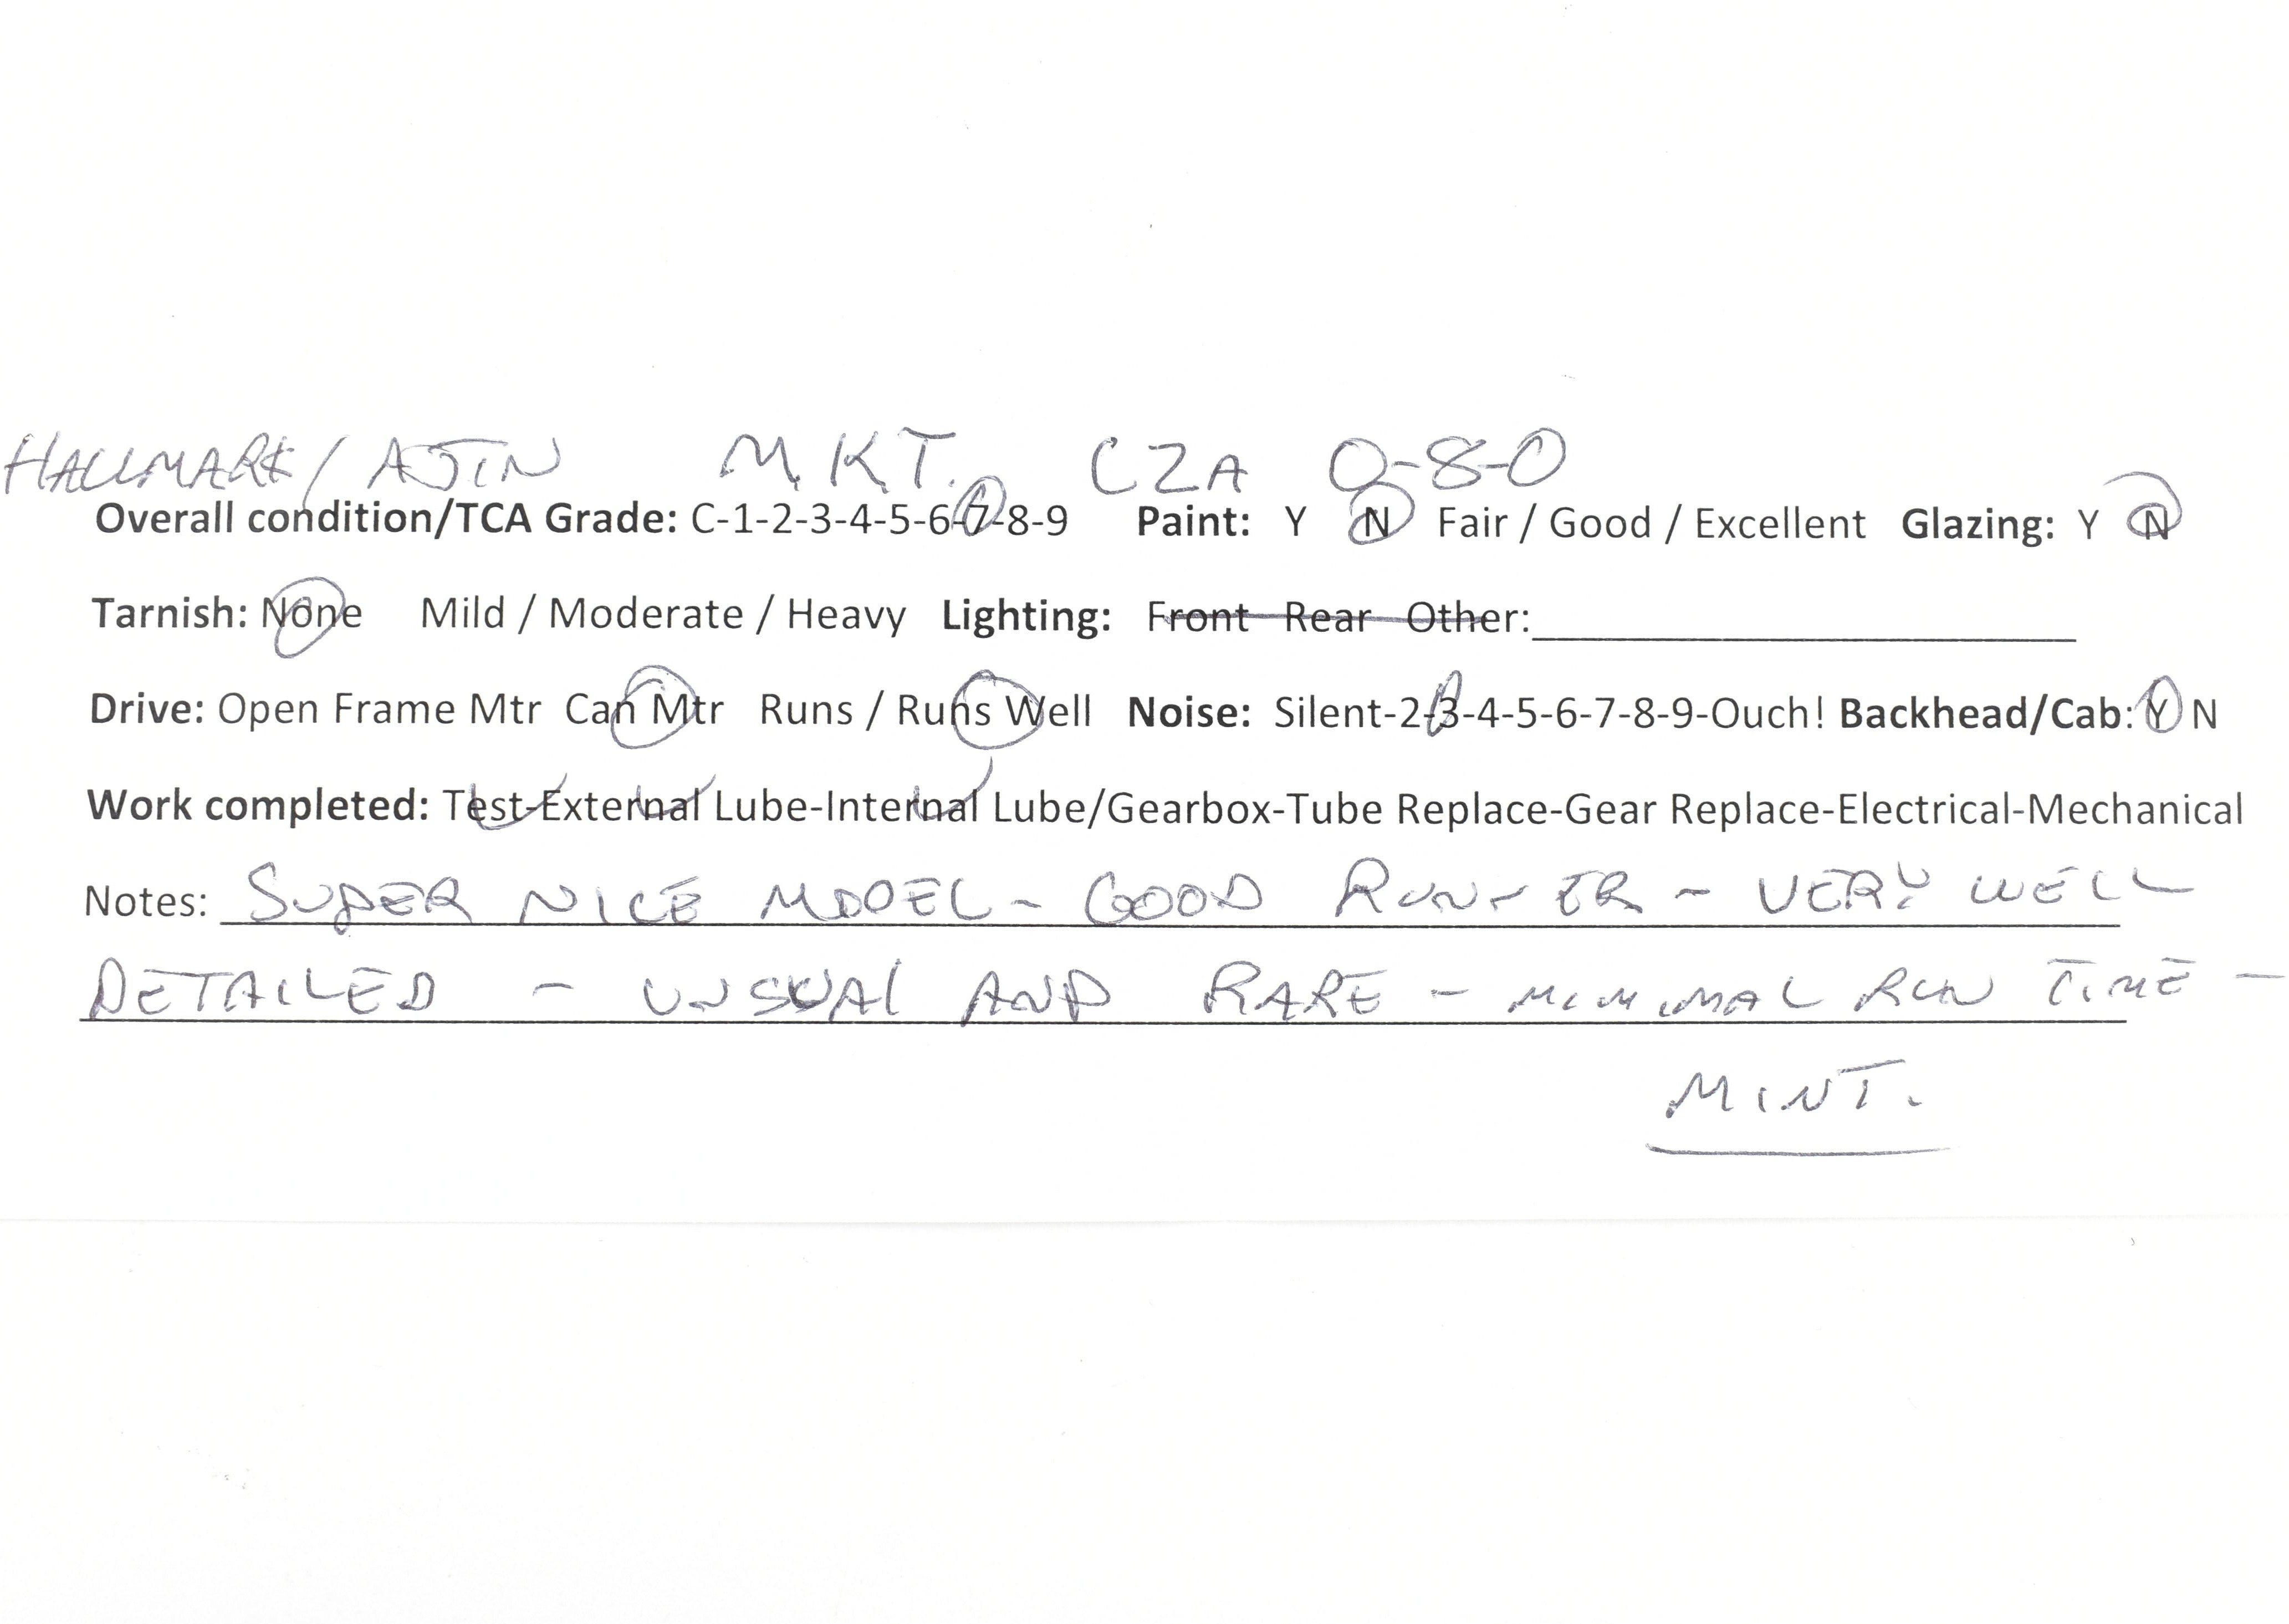 HALLMARK/ AJIN M.K.T. C2A 0-8-0
Overall condition/TCA Grade: C-1-2-3-4-5-6-7-8-9 Paint: Y N Fair / Good / Excellent Glazing: Y N
Tarnish: None Mild / Moderate / Heavy Lighting: Front Rear Other:
Drive: Open Frame Mtr Can Mtr Runs / Runs Well Noise: Silent-2-3-4-5-6-7-8-9-Ouch! Backhead/Cab: Y N
Work completed: Test-External Lube-Internal Lube/Gearbox-Tube Replace-Gear Replace-Electrical-Mechanical
Notes: SUPER NICE MODEL - GOOD RUNNER - VERY WELL
DETAILED - UNSUAL AND RARE - MINIMAL RUN TIME -
MINT.